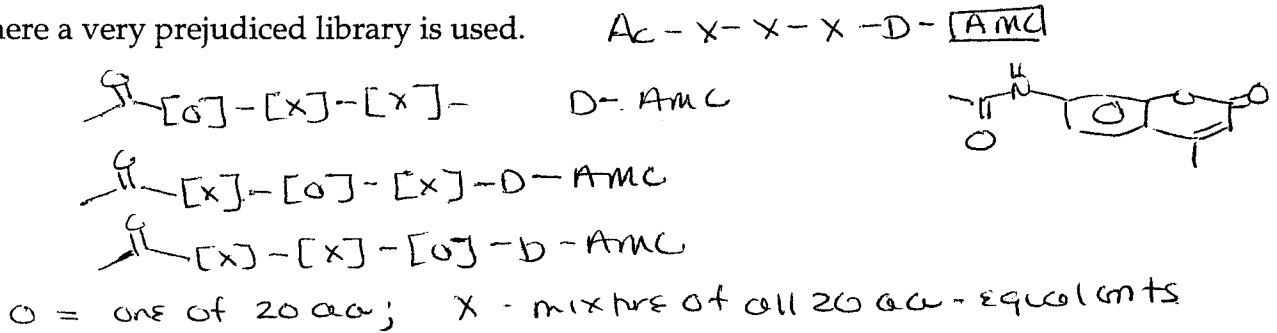 here a very prejudiced library is used. Ac - X - X - X - D - AMC
[O] - [X] - [X] - D - AMC
[X] - [O] - [X] - D - AMC
[X] - [X] - [O] - D - AMC
O = one of 20 aa; X - mixture of all 20 aa - equal amts